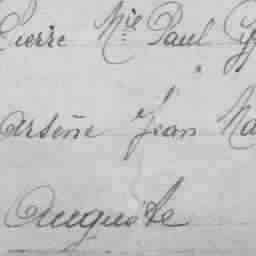 Pierre Mie Paul Cy
Arsène Jean Ma
Auguste